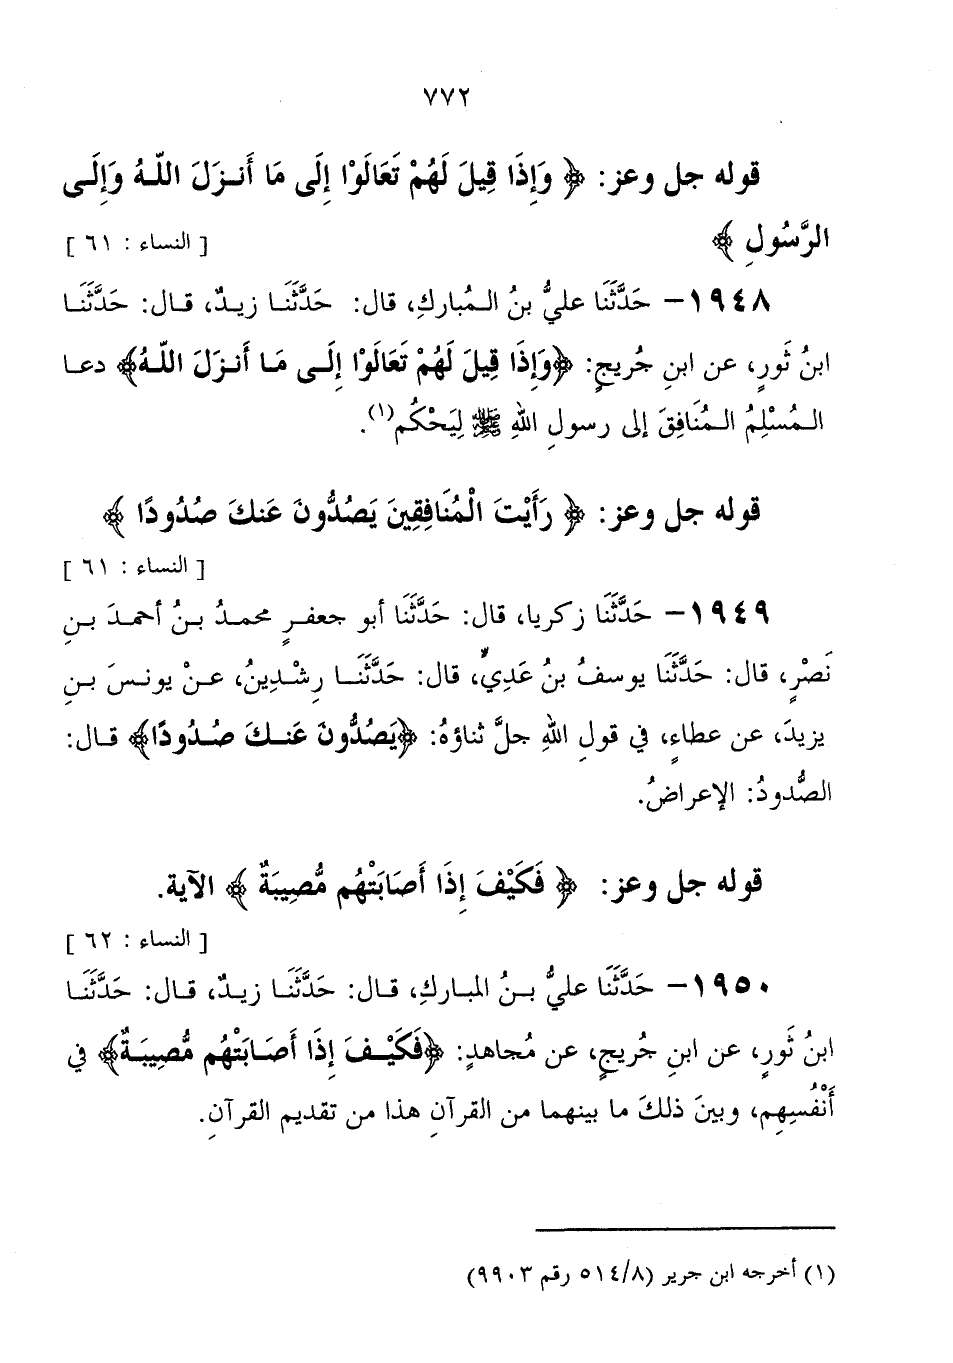 ٧٧٢
قوله جل وعز: ﴿ وَإِذَا قِيلَ لَهُمْ تَعَالَوْا إِلَى مَا أَنـزَلَ اللّهُ وَإِلَـى
الرَّسُولِ ﴾ [ النساء : ٦١ ]
١٩٤٨– حَدَّثَنَا عليُّ بنُ الـمُباركِ، قال: حَدَّثَنَـا زيـدٌ، قـال: حَدَّثَنَـا
ابنُ ثَورٍ، عن ابنِ جُريجٍ: ﴿وَإِذَا قِيلَ لَهُمْ تَعَالَوْا إِلَـى مَـا أَنـزَلَ اللّـهُ﴾ دعـا
الـمُسْلِمُ الـمُنَافِقَ إلى رسولِ اللهِ ﷺ لِيَحْكُم(١).
قوله جل وعز: ﴿ رَأَيْتَ الْمُنَافِقِينَ يَصُدُّونَ عَنكَ صُدُودًا ﴾
[ النساء : ٦١ ]
١٩٤٩– حَدَّثَنَا زكريا، قال: حَدَّثَنَا أبو جعفـرٍ محمـدُ بـنُ أحمـدَ بـنِ
نَصْرٍ، قال: حَدَّثَنَا يوسفُ بنُ عَديٍّ، قال: حَدَّثَنَــا رِشْـدِينُ، عـنْ يونـسَ بـنِ
يزيدَ، عن عطاءٍ، في قولِ اللهِ جلَّ ثناؤهُ: ﴿يَصُدُّونَ عَنــكَ صُـدُودًا﴾ قـال:
الصُّدودُ: الإعراضُ.
قوله جل وعز: ﴿ فَكَيْفَ إِذَا أَصَابَتْهُم مُّصِيبَةٌ ﴾ الآية.
[ النساء : ٦٢ ]
١٩٥٠– حَدَّثَنَا عليُّ بـنُ المباركِ، قـال: حَدَّثَنَـا زيـدٌ، قـال: حَدَّثَنَـا
ابنُ ثَورٍ، عن ابنِ جُريجٍ، عن مُجاهدٍ: ﴿فَكَيْـفَ إِذَا أَصَـابَتْهُم مُّصِيبَـةٌ﴾ في
أَنْفُسِهِم، وبينَ ذلكَ ما بينهما من القرآنِ هذا من تقديم القرآنِ.
(١) أخرجه ابن جرير (٥١٤/٨ رقم ٩٩٠٣)